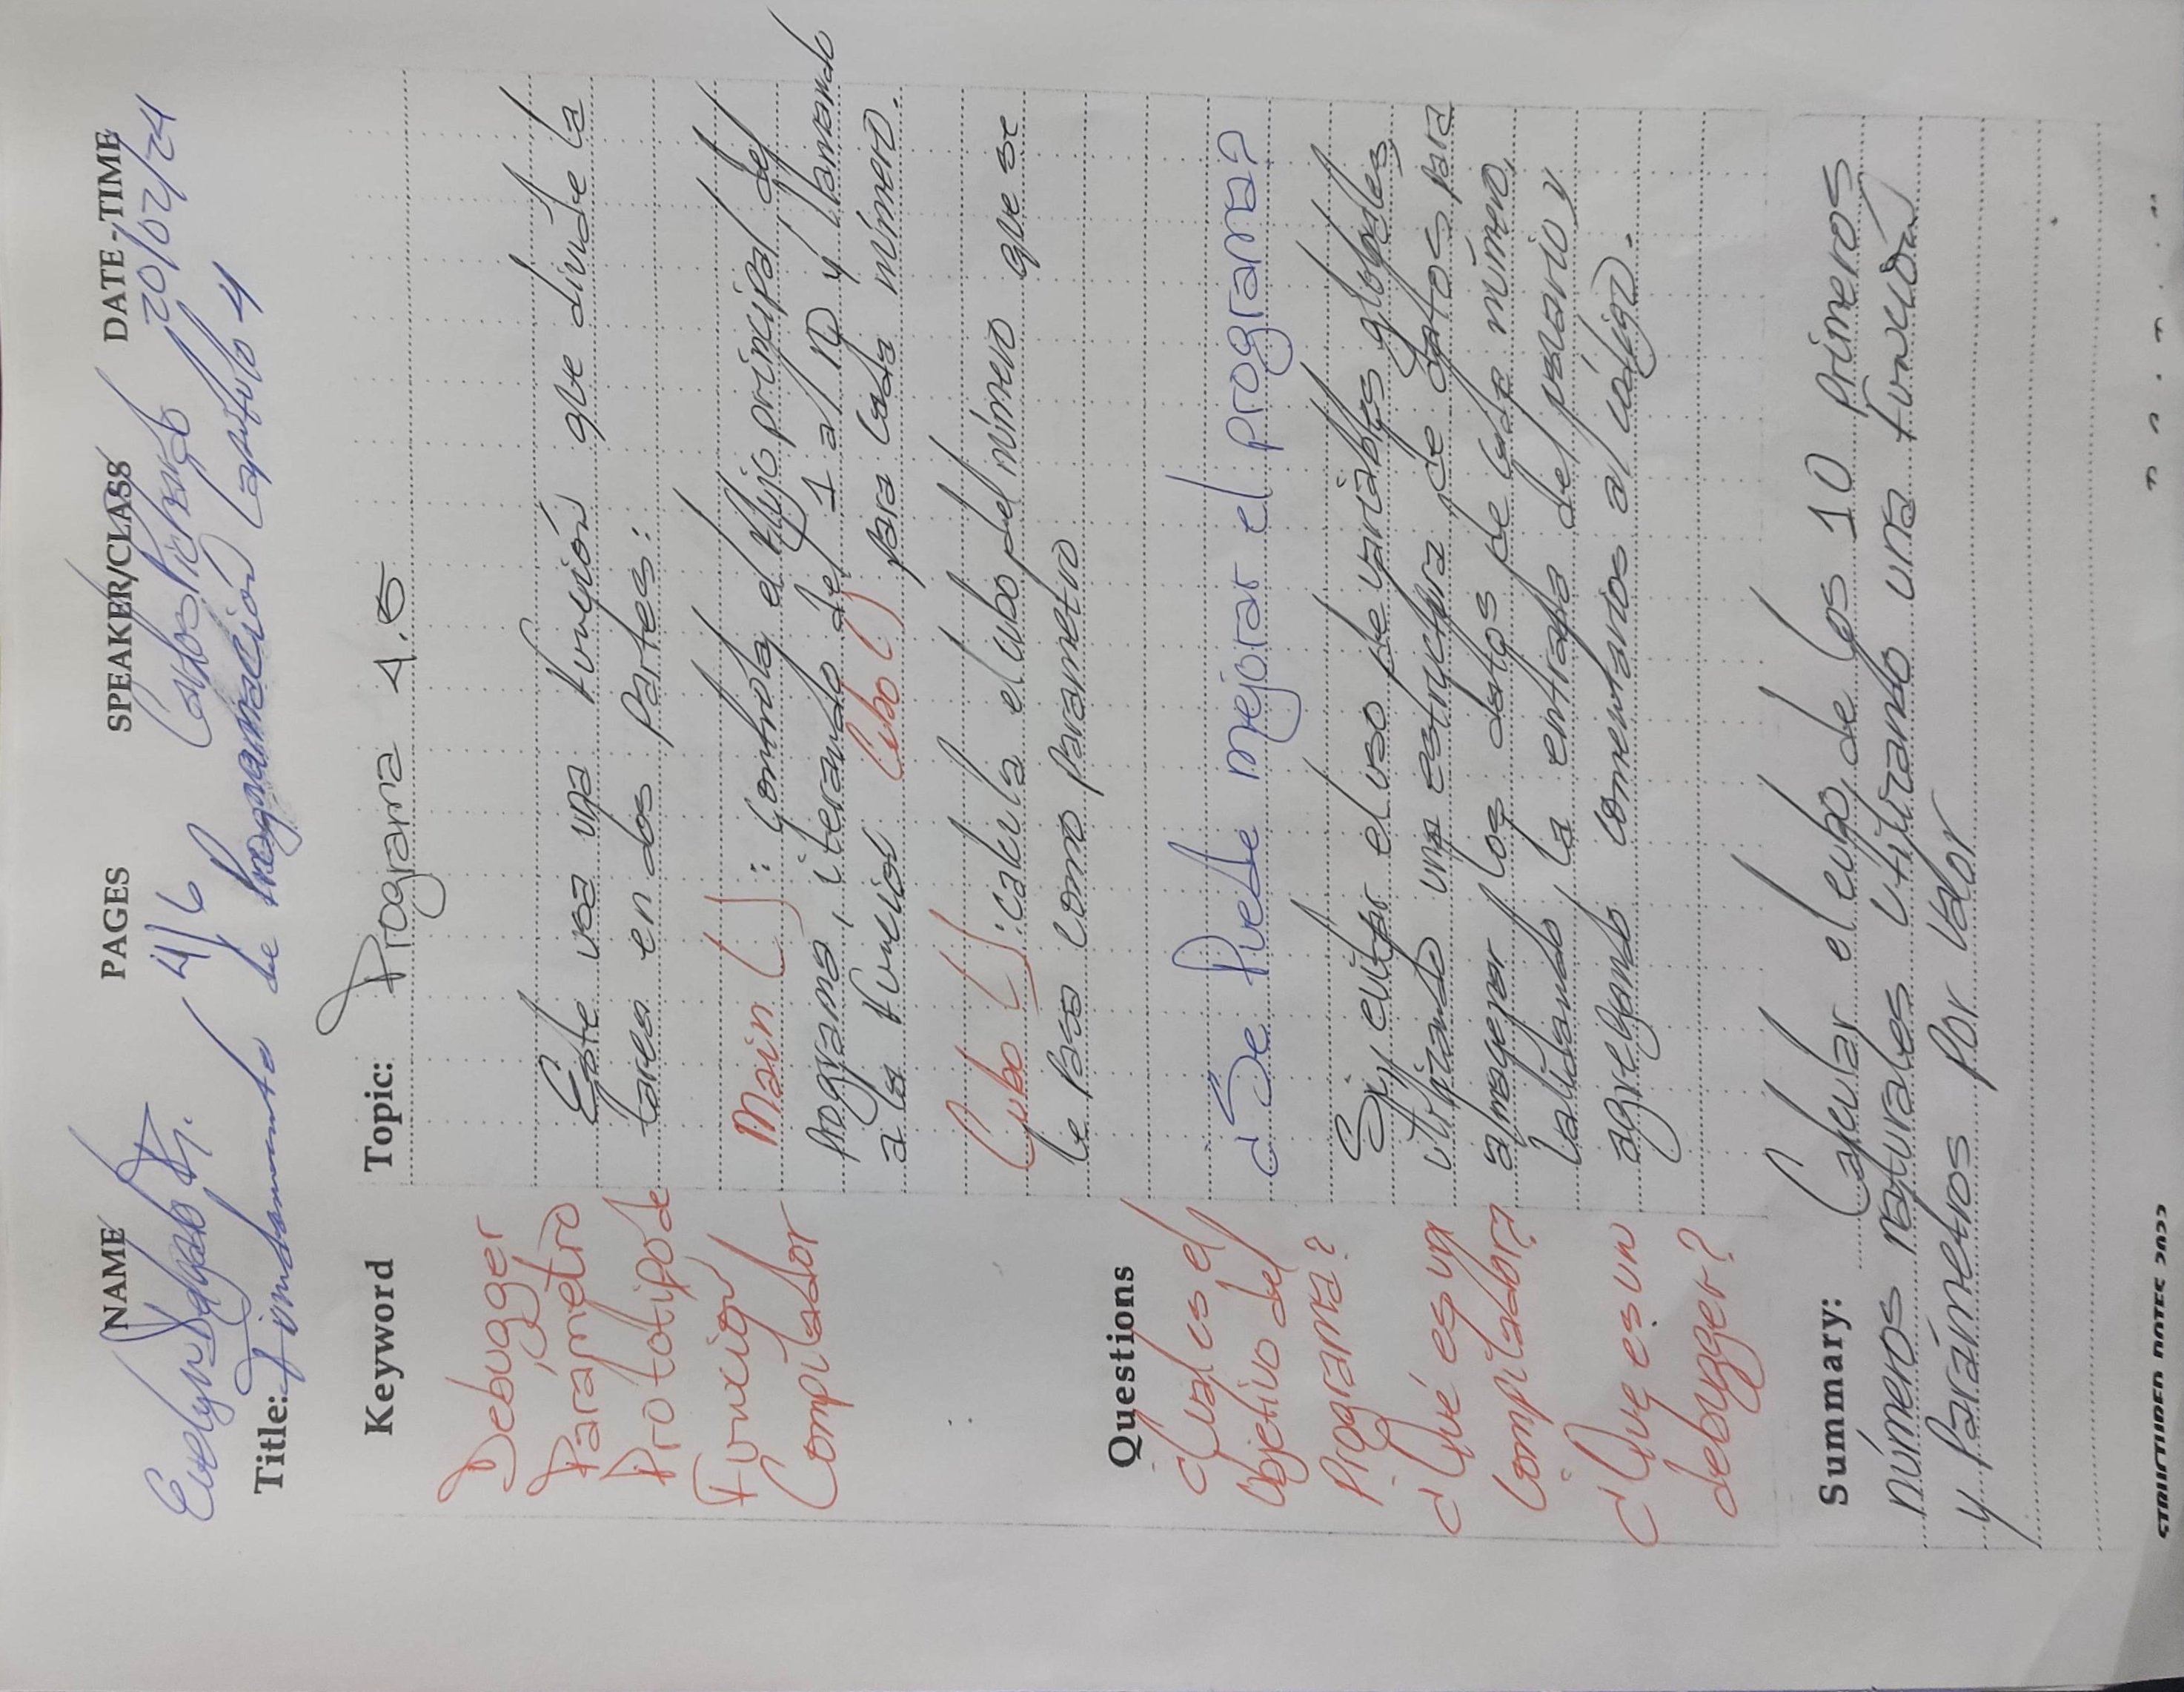 NAME PAGES SPEAKER/CLASS DATE-TIME
Evelyn Delgado R. 4/6 Carlos Pichardo 20/02/24
Title: Fundamento de Programación Capítulo 4
Keyword
Debugger
Parámetro
Prototipo de
Función
Compilador
Topic: Programa 4.5
Este usa una función que divide la
tarea en dos partes:
Main (): controla el flujo principal del
programa, iterando del 1 al 10 y llamando
a la función Cubo () para cada número.
Cubo (): calcula el cubo del número que se
le pasa como parametro
Questions
¿Cual es el
Objetivo del
programa?
¿Qué es un
compilador?
¿Que es un
debugger?
¿Se Puede mejorar el programa?
Si, evitar el uso de variables globales,
utilizando una estructura de datos para
almacenar los datos de cada número,
Validando la entrada del usuario y
agregando comentarios al código.
Summary: Calcular el cubo de los 10 primeros
números naturales utilizando una función
y Parámetros por valor
STRUCTURED NOTES 2022